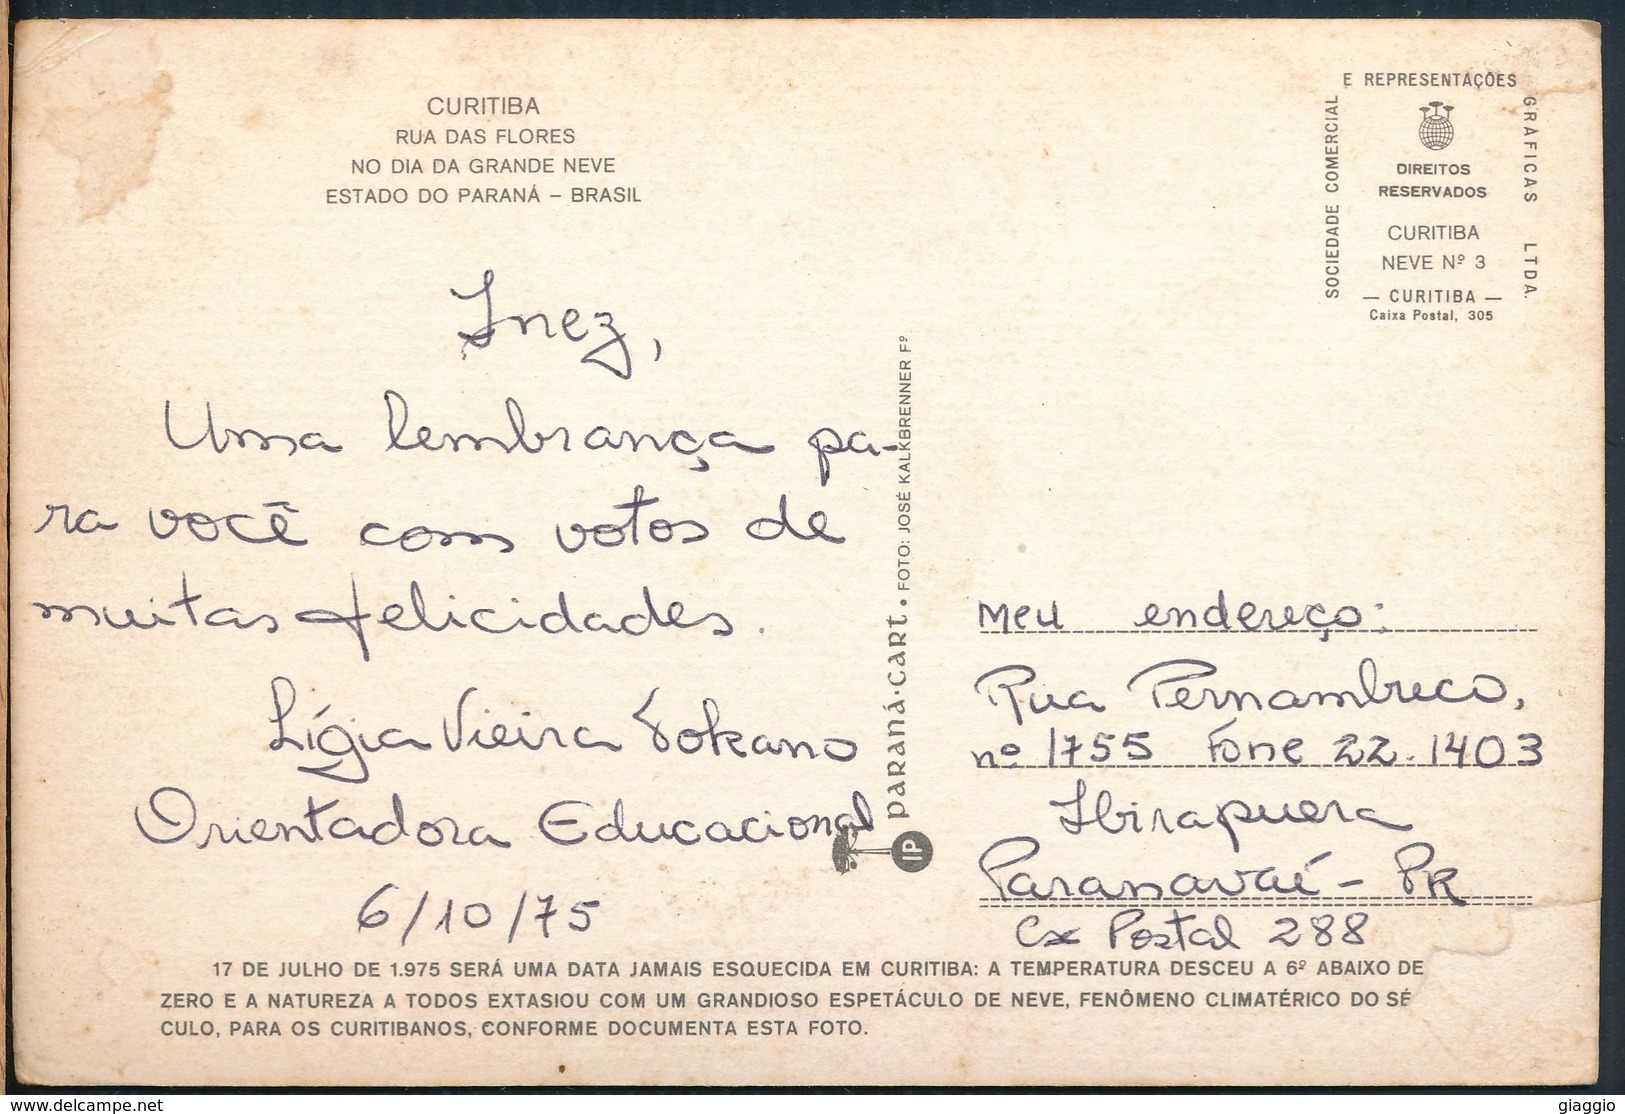 CURITIBA
RUA DAS FLORES
NO DIA DA GRANDE NEVE
ESTADO DO PARANÁ – BRASIL
Inez,
Uma lembrança pa-
ra você com votos de
muitas felicidades.
Lígia Vieira Tokano
Orientadora Educacional
6/10/75
17 DE JULHO DE 1.975 SERÁ UMA DATA JAMAIS ESQUECIDA EM CURITIBA: A TEMPERATURA DESCEU A 6º ABAIXO DE
ZERO E A NATUREZA A TODOS EXTASIOU COM UM GRANDIOSO ESPETÁCULO DE NEVE, FENÔMENO CLIMATÉRICO DO SÉ
CULO, PARA OS CURITIBANOS, CONFORME DOCUMENTA ESTA FOTO.
IP PARANÁ·CART. FOTO: JOSÉ KALKBRENNER Fº
SOCIEDADE COMERCIAL
E REPRESENTAÇÕES
GRÁFICAS LTDA.
DIREITOS
RESERVADOS
CURITIBA
NEVE Nº 3
— CURITIBA —
Caixa Postal, 305
Meu endereço:
Rua Pernambuco,
nº 1755 Fone 22.1403
Ibirapuera
Paranavaí - PR
Cx Postal 288
www.delcampe.net
giaggio